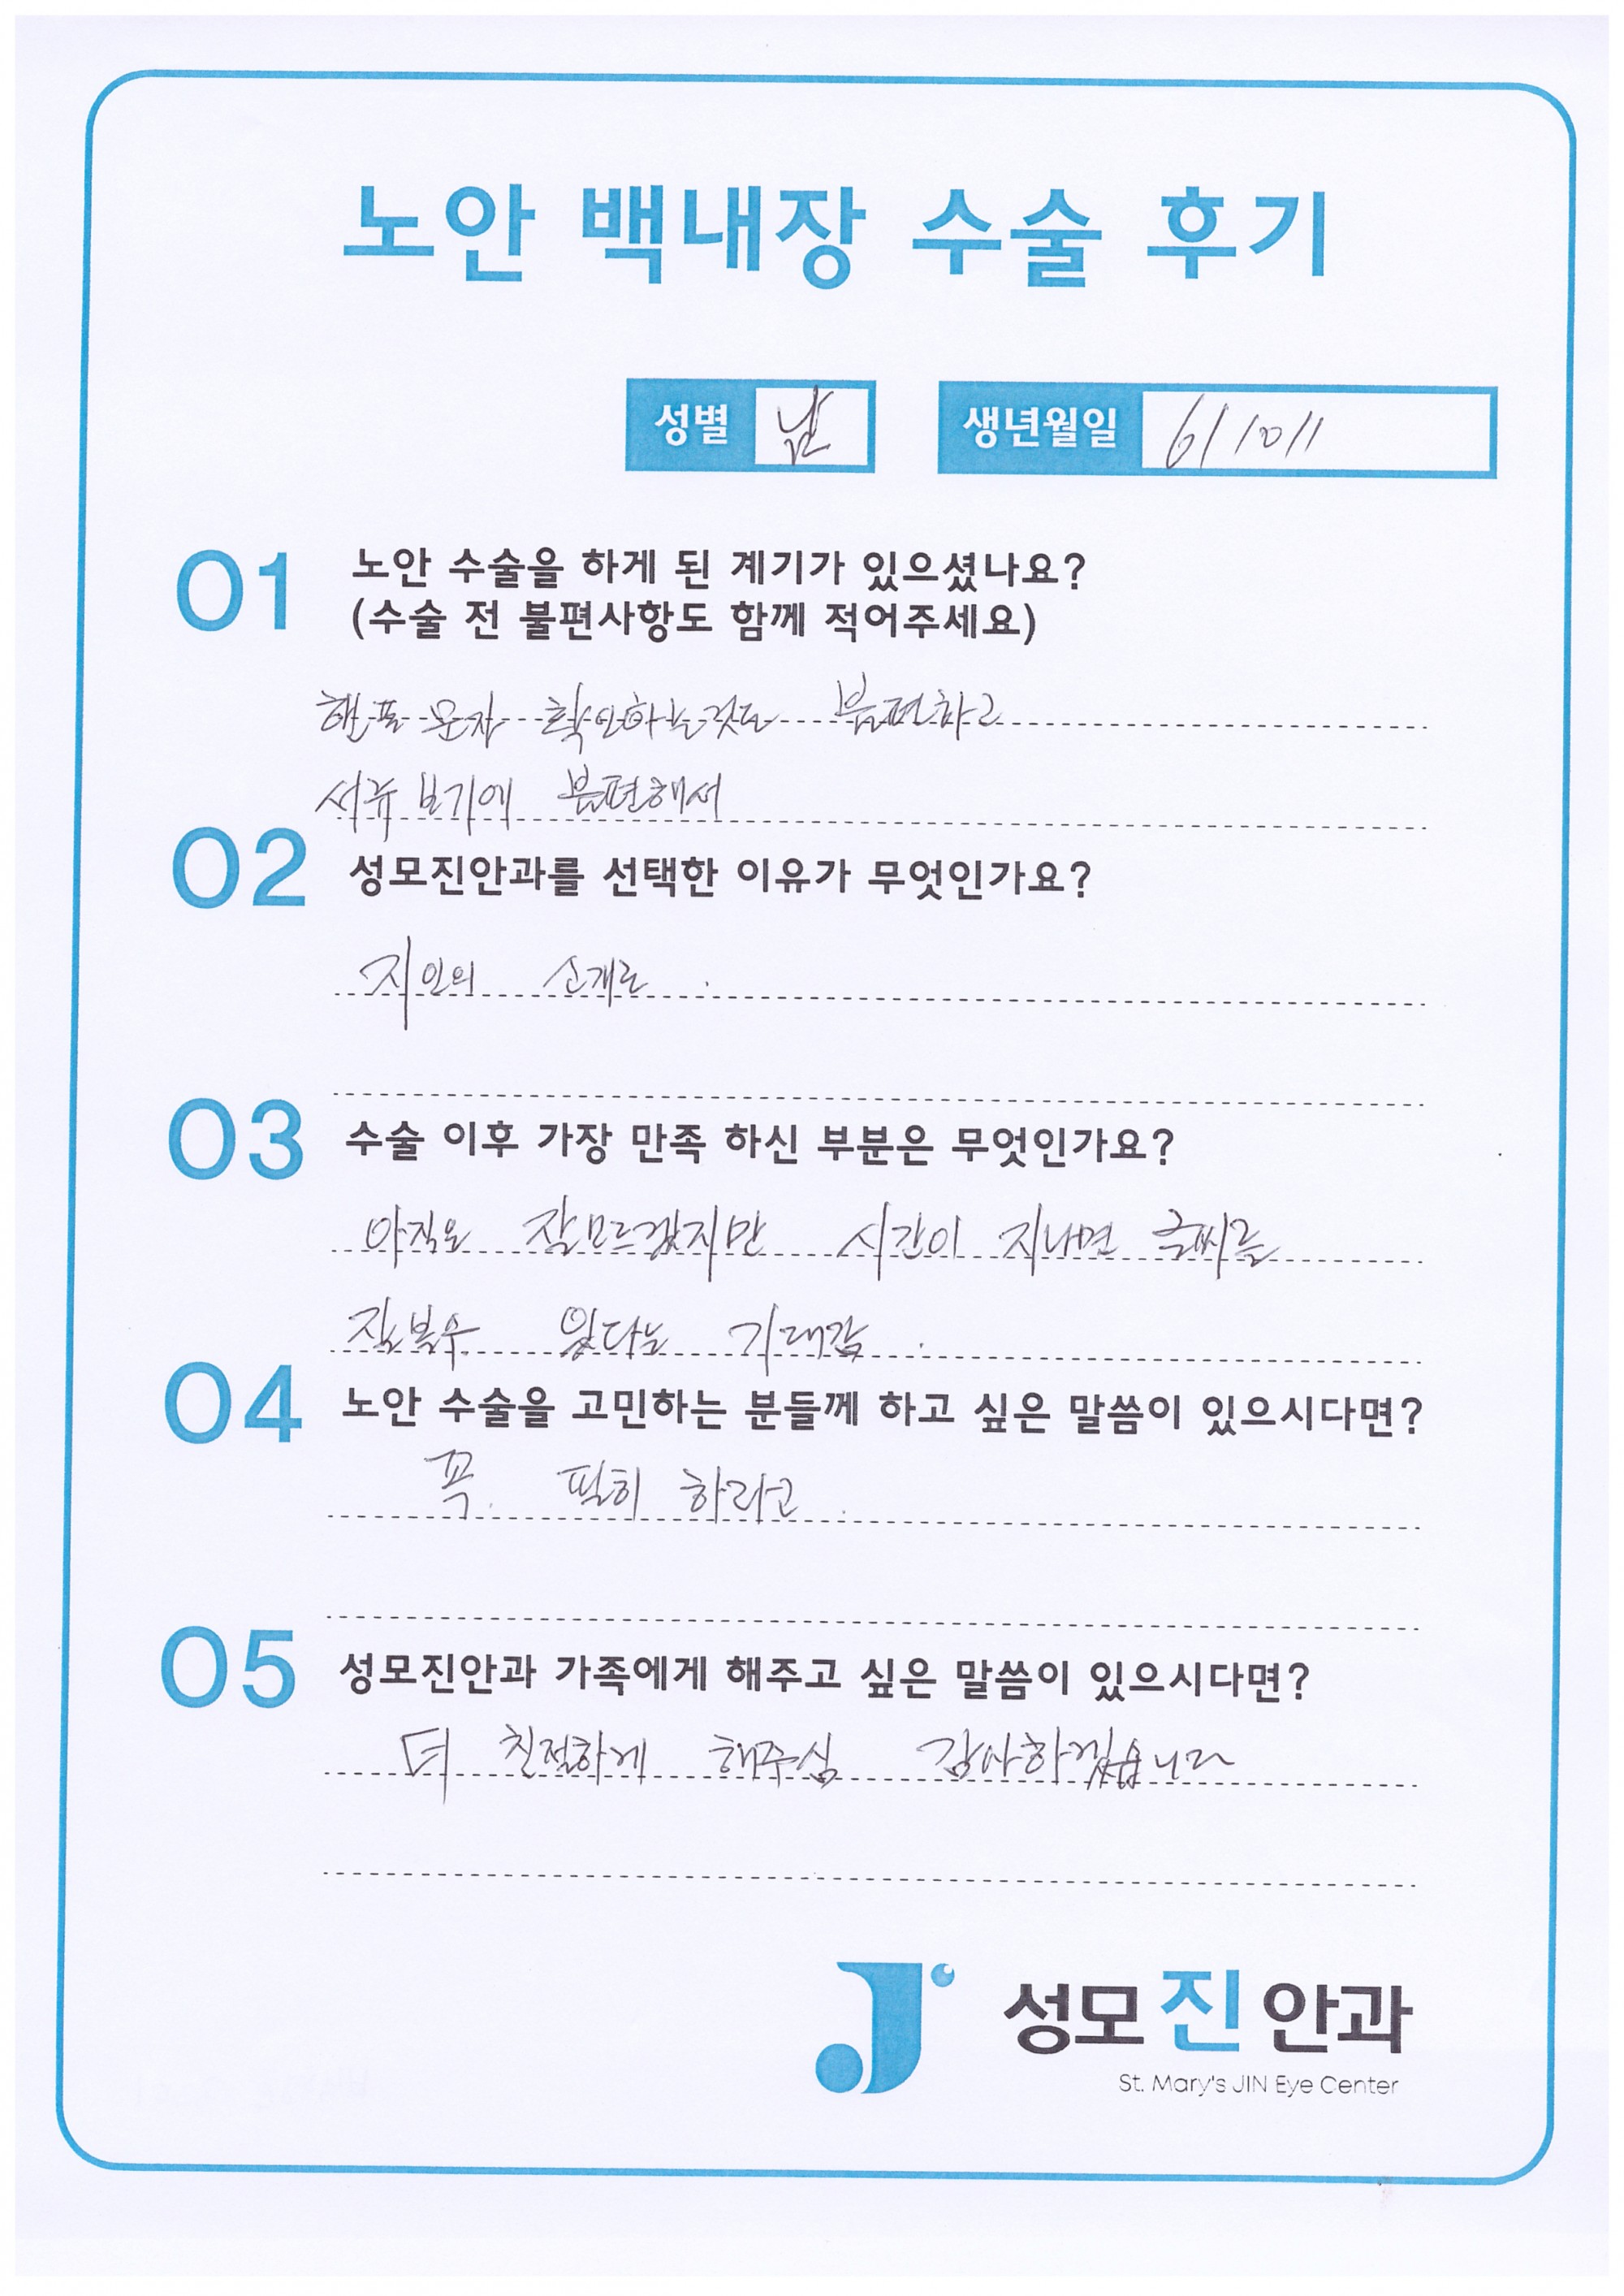 노안 백내장 수술 후기
성별 남 생년월일 611011
01 노안 수술을 하게 된 계기가 있으셨나요?
(수술 전 불편사항도 함께 적어주세요)
핸폰 문자 확인하는것도 불편하고
서류 보기에 불편해서
02 성모진안과를 선택한 이유가 무엇인가요?
지인의 소개로.
03 수술 이후 가장 만족 하신 부분은 무엇인가요?
아직은 잘모르겠지만 시간이 지나면 글씨를
잘볼수 있다는 기대감.
04 노안 수술을 고민하는 분들께 하고 싶은 말씀이 있으시다면?
꼭. 필히 하라고.
05 성모진안과 가족에게 해주고 싶은 말씀이 있으시다면?
더 친절하게 해주심 감사하겠습니다
성모진안과
St. Mary's JIN Eye Center